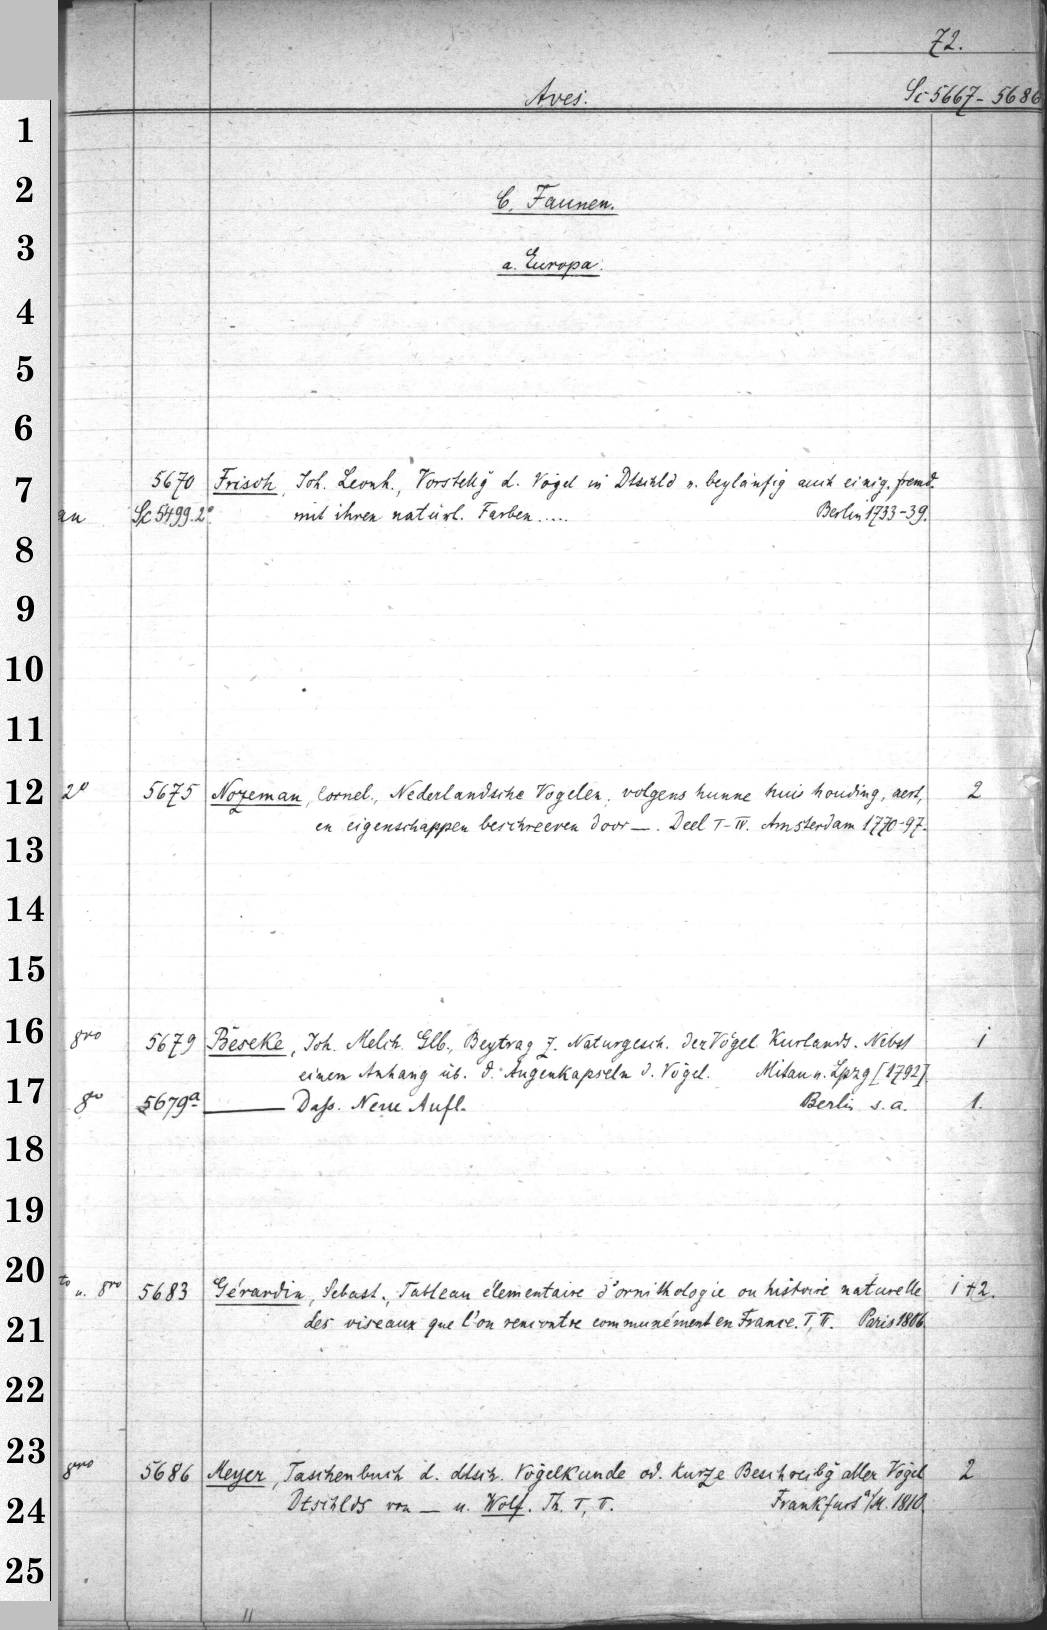 72.
Aves. Sc 5667-5686
C. Faunen.
a. Europa.
1
2
3
4
5
6
7 5670 Frisch, Joh. Leonh., Vorstellg d. Vögel in Dtschld u. beyläufig auch einig. fremd.
an Sc 5499.2° mit ihren natürl. Farben..... Berlin 1733-39.
8
9
10
11
12 2° 5675 Nozeman, Cornel., Nederlandsche Vogelen, volgens hunne huishouding, aert, 2
en eigenschappen beschreeven door —. Deel I-IV. Amsterdam 1770-97.
13
14
15
16 8vo 5679 Beseke, Joh. Melch. Glb., Beytrag z. Naturgesch. der Vögel Kurlands. Nebst 1
einem Anhang üb. d. Augenkapseln d. Vögel. Mitau u. Lpzg [1792]
17 8vo 5679a — Dass. Neue Aufl. Berlin s.a. 1.
18
19
20 to u. 8vo 5683 Gérardin, Sebast., Tableau élementaire d'ornithologie ou histoire naturelle 1+2.
21 des oiseaux que l'on rencontre communément en France. I, II. Paris 1806.
22
23 8vo 5686 Meyer, Taschenbuch d. dtsch. Vögelkunde od. kurze Beschreibg aller Vögel 2
24 Dtschlds von — u. Wolf. Th. I, II. Frankfurt a/M. 1810.
25